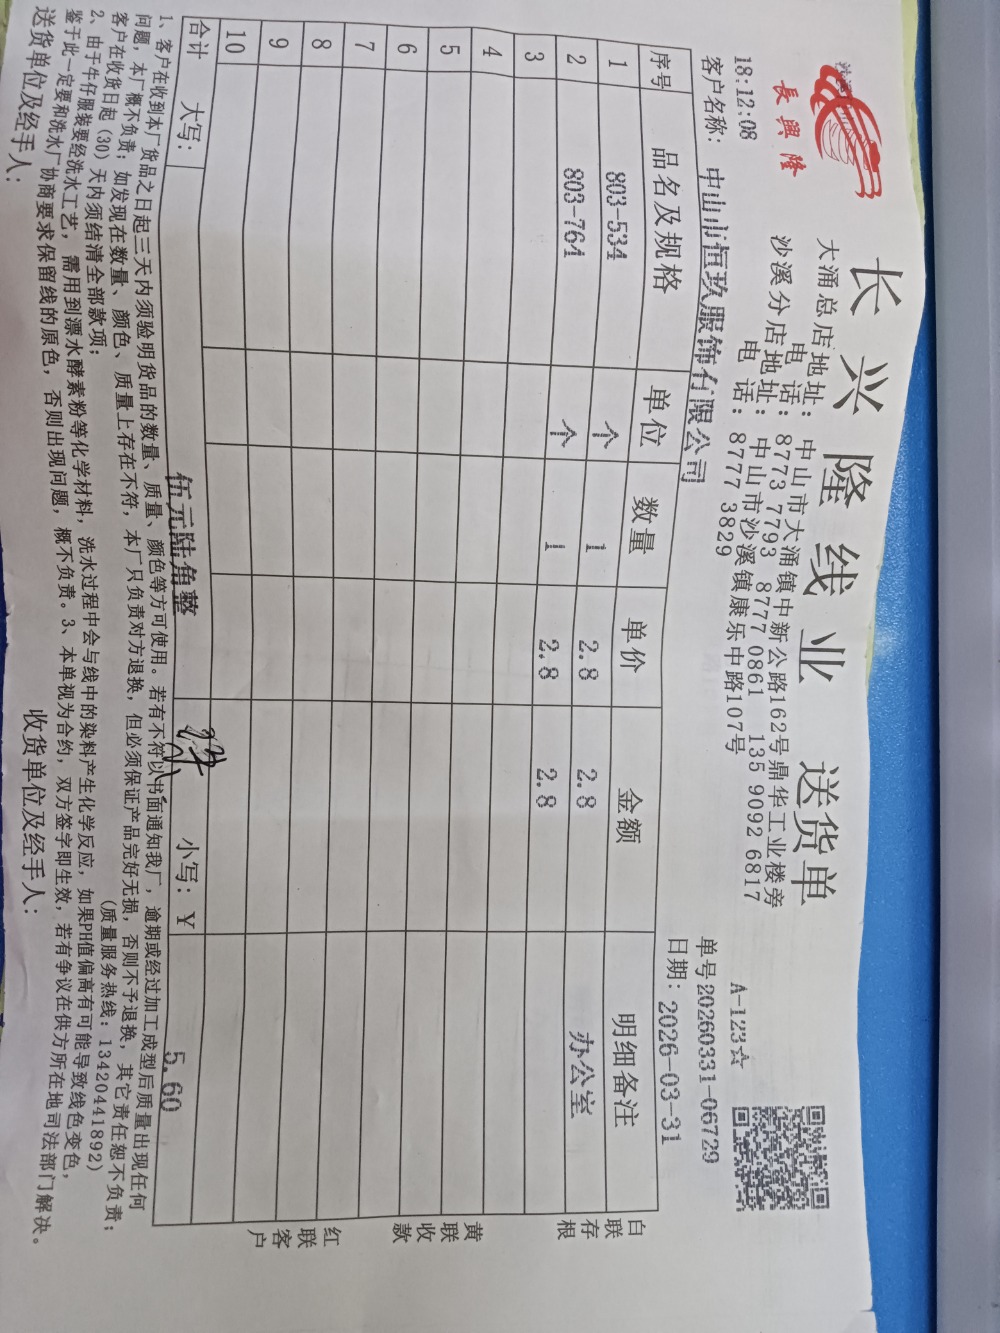 長興隆
长兴隆线业 送货单
大涌总店地址：中山市大涌镇中新公路162号鼎华工业楼旁
电 话：8773 7793 8777 0861 135 9092 6817
沙溪分店地址：中山市沙溪镇康乐中路107号
电 话：8777 3829
A-123☆
18:12:08
单号20260331-06729
客户名称：中山市恒玖服饰有限公司
日期：2026-03-31
序号 品名及规格 单位 数量 单价 金额 明细备注
1 803-534 个 1 2.8 2.8 办公室
2 803-764 个 1 2.8 2.8
3
4
5
6
7
8
9
10
合计 大写： 伍元陆角整 小写：￥ 5.60
白联存根
黄联收款
红联客户
1、客户在收到本厂货品之日起三天内须验明货品的数量、质量、颜色等方可使用。若有不符以书面通知我厂，逾期或经过加工成型后质量出现任何
问题，本厂概不负责；如发现在数量、颜色、质量上存在不符，本厂只负责对方退换，但必须保证产品完好无损，否则不予退换，其它责任恕不负责；
客户在收货日起（30）天内须结清全部款项； （质量服务热线：13420441892）
2、由于牛仔服装要经洗水工艺，需用到漂水酵素粉等化学材料，洗水过程中会与线中的染料产生化学反应，如果PH值偏高有可能导致线色变色，
鉴于此一定要和洗水厂协商要求保留线的原色，否则出现问题，概不负责。3、本单视为合约，双方签字即生效，若有争议在供方所在地司法部门解决。
送货单位及经手人： 收货单位及经手人：